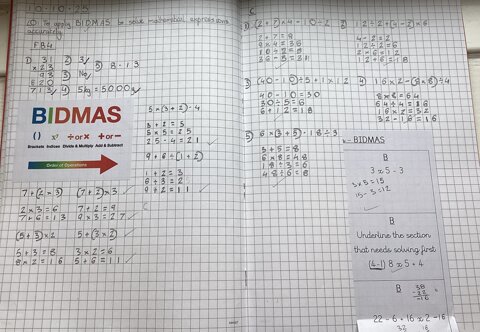 10.10.25
LO To apply BIDMAS to solve mathematical expressions
accurately
FB4
1) 31
x 23
93
620
713
2) 3
3) No
4) 5kg = 5000g
5) 8 - 13
BIDMAS
() x² ÷ or × + or −
Brackets Indices Divide & Multiply Add & Subtract
Order of Operations
5 x (3 + 2) - 4
3 + 2 = 5
5 x 5 = 25
25 - 4 = 21
9 + 6 ÷ (1 + 2)
1 + 2 = 3
6 ÷ 3 = 2
9 + 2 = 11
7 + (2 x 3)
2 x 3 = 6
7 + 6 = 13
(7 + 2) x 3
7 + 2 = 9
9 x 3 = 27
(5 + 3) x 2
5 + 3 = 8
8 x 2 = 16
5 + (3 x 2)
3 x 2 = 6
5 + 6 = 11
C
1) (2 + 7) x 4 - 10 ÷ 2
2 + 7 = 9
9 x 4 = 36
10 ÷ 2 = 5
36 - 5 = 31
2) 12 ÷ 2 + (4 - 2) x 6
4 - 2 = 2
12 ÷ 2 = 6
2 x 6 = 12
12 + 6 = 18
3) (40 - 10) ÷ 5 + 1 x 12
40 - 10 = 30
30 ÷ 5 = 6
6 + 12 = 18
4) 16 x 2 - (8 x 8) ÷ 4
8 x 8 = 64
64 ÷ 4 = 16
16 x 2 = 32
32 - 16 = 16
5) 6 x (3 + 5) - 18 ÷ 3
3 + 5 = 8
6 x 8 = 48
18 ÷ 3 = 6
– BIDMAS
B
3 x 5 - 3
3 x 5 = 15
15 - 3 = 12
B
Underline the section
that needs solving first
(4-1) 8 x 5 + 4
B
38
- 22
- 16
22 - 6 + 16 x 2 - 16
32 16